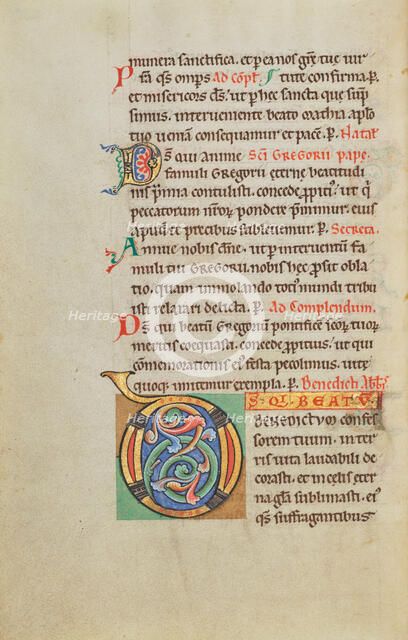 munera sanctifica. et per ea nos gr̃e tue uir
fa. qs omps Ad Copl̃.
et misericors ds̃. ut per hec sancta que sũp
simus. interueniente beato
tuo ueniam consequamur et pacẽ. p. Natal̃
Ds̃ qui anime Sc̃i Gregorii pape.
famuli Gregorii eterne beatitudi
nis p̃mia contulisti. concede p̃piti'. ut q̃
peccatorum nr̃or̃ pondere p̃mimur. eius
apud te precibus subleuemur. p. Secreta.
Annue nobis dñe. ut per interuentũ fa
muli tui Gregorii. nobis hec p̃sit obla
tio. quam immolando toti' mundi tribu
isti relaxari delicta. p. Ad Complendum.
Ds̃ qui beatũ Gregorium pontificẽ scor̃ tuor̃
meritis coequasti. concede p̃pitius. ut qui
cõmemorationis ei' festa pcolimus. uite
quoq; imitemur exempla. p. Benedicti Abb̃.
BEAT
Benedictum confes
sorem tuum. inter
uita laudabili de
corasti. et in celis eter
na gl̃a sublimasti. ei'
qs suffragantibus
Heritage
Heritage
Heritage
Heritage
Heritage
Heritage